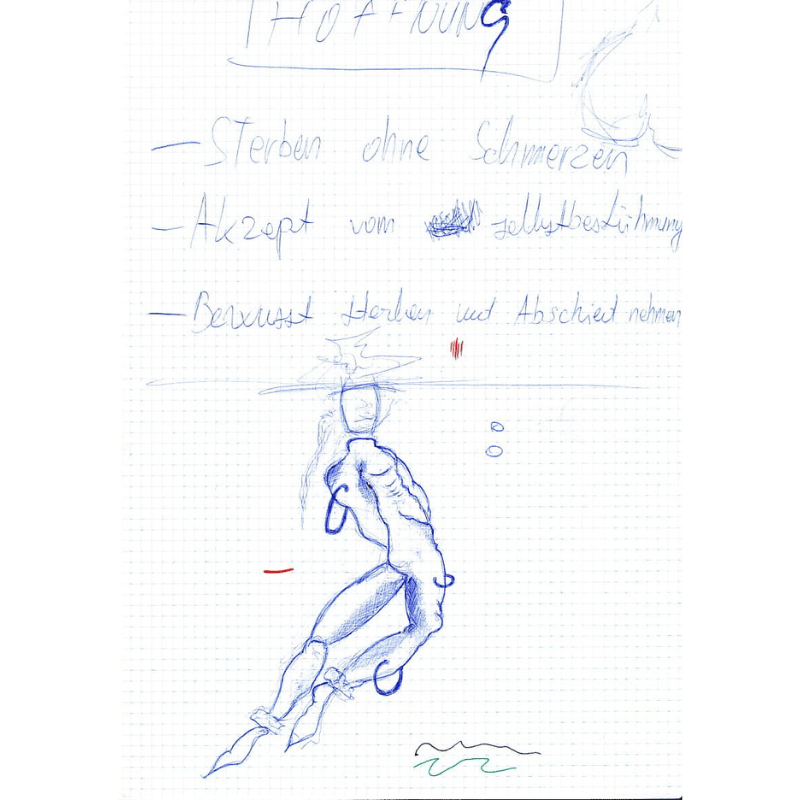 HOFFNUNG
— Sterben ohne Schmerzen
— Akzept vom selbstbestühmung
— Bewusst sterben und Abschied nehmen